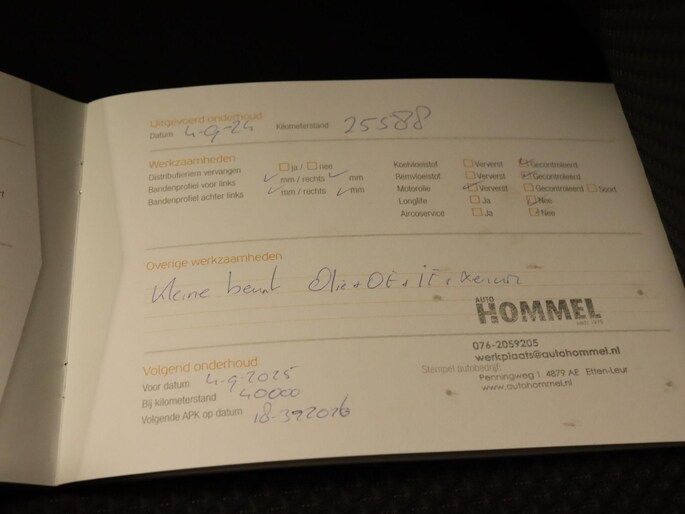 Uitgevoerd onderhoud
Datum 4-9-24 Kilometerstand 25588
Werkzaamheden
Distributieriem vervangen ja / nee
Bandenprofiel voor links mm / rechts mm
Bandenprofiel achter links mm / rechts mm
Koelvloeistof Ververst Gecontroleerd
Remvloeistof Ververst Gecontroleerd
Motorolie Ververst Gecontroleerd Soort
Longlife Ja Nee
Aircoservice Ja Nee
Overige werkzaamheden
Kleine beurt Olie + OF + IF +
AUTO
HOMMEL
076-2059205
werkplaats@autohommel.nl
Stempel autobedrijf
Penningweg 1 4879 AE Etten-Leur
www.autohommel.nl
Volgend onderhoud
Voor datum 4-9-2025
Bij kilometerstand 40000
Volgende APK op datum 18-3-2026